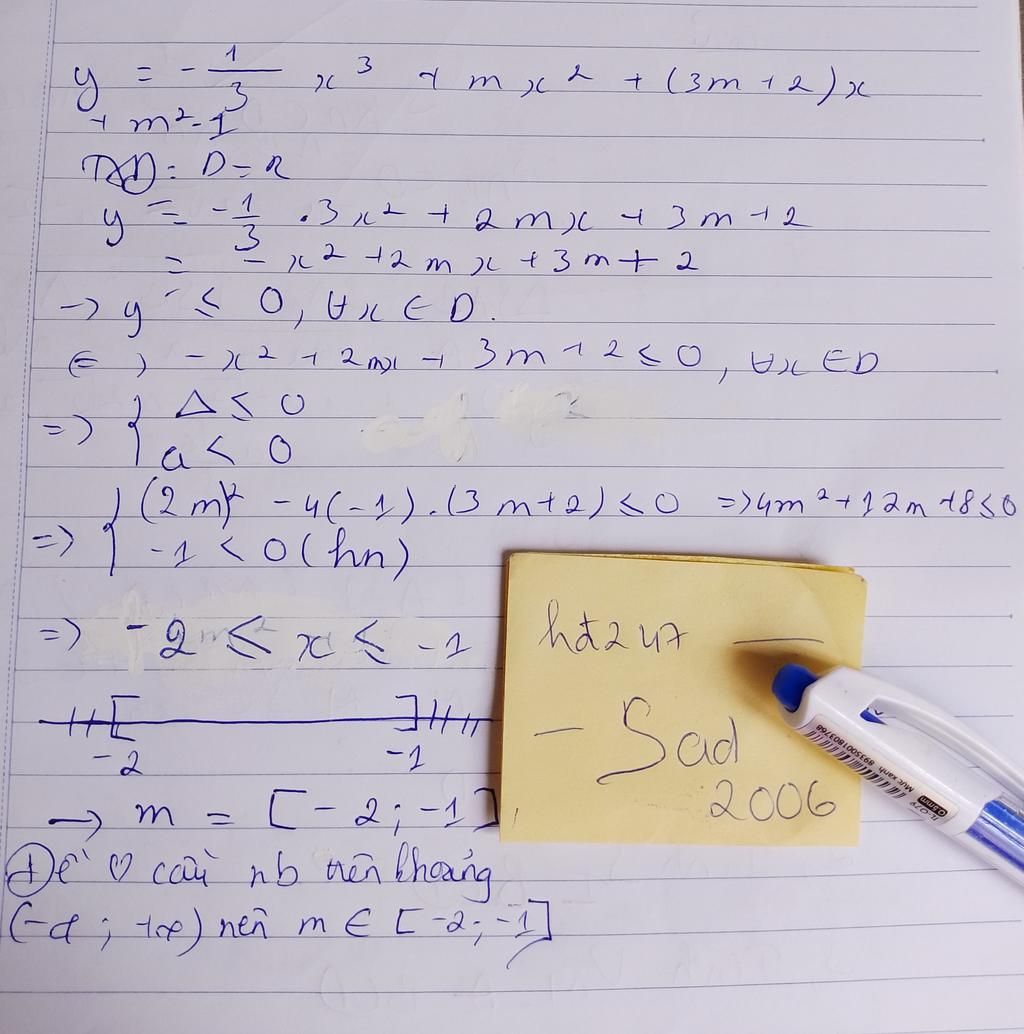 y = - 1/3 x³ + mx² + (3m+2)x
+ m²-1
TXD: D=R
y' = -1/3 .3x² + 2mx + 3m+2
= -x² +2mx +3m+2
→ y' ≤ 0, ∀x ∈ D.
⇔ -x² + 2mx + 3m+2 ≤ 0, ∀x ∈ D
=> { Δ ≤ 0
a < 0
=> { (2m)² - 4(-1).(3m+2) ≤ 0 => 4m² + 12m + 8 ≤ 0
-1 < 0 (hn)
=> -2 ≤ x ≤ -1
-2 -1
→ m = [-2; -1]
Để cầu nb trên khoảng
(-∞; +∞) nên m ∈ [-2; -1]
hđ247 —
- Sad
2006
Mực xanh 8935001803768
TL-079
0.5mm